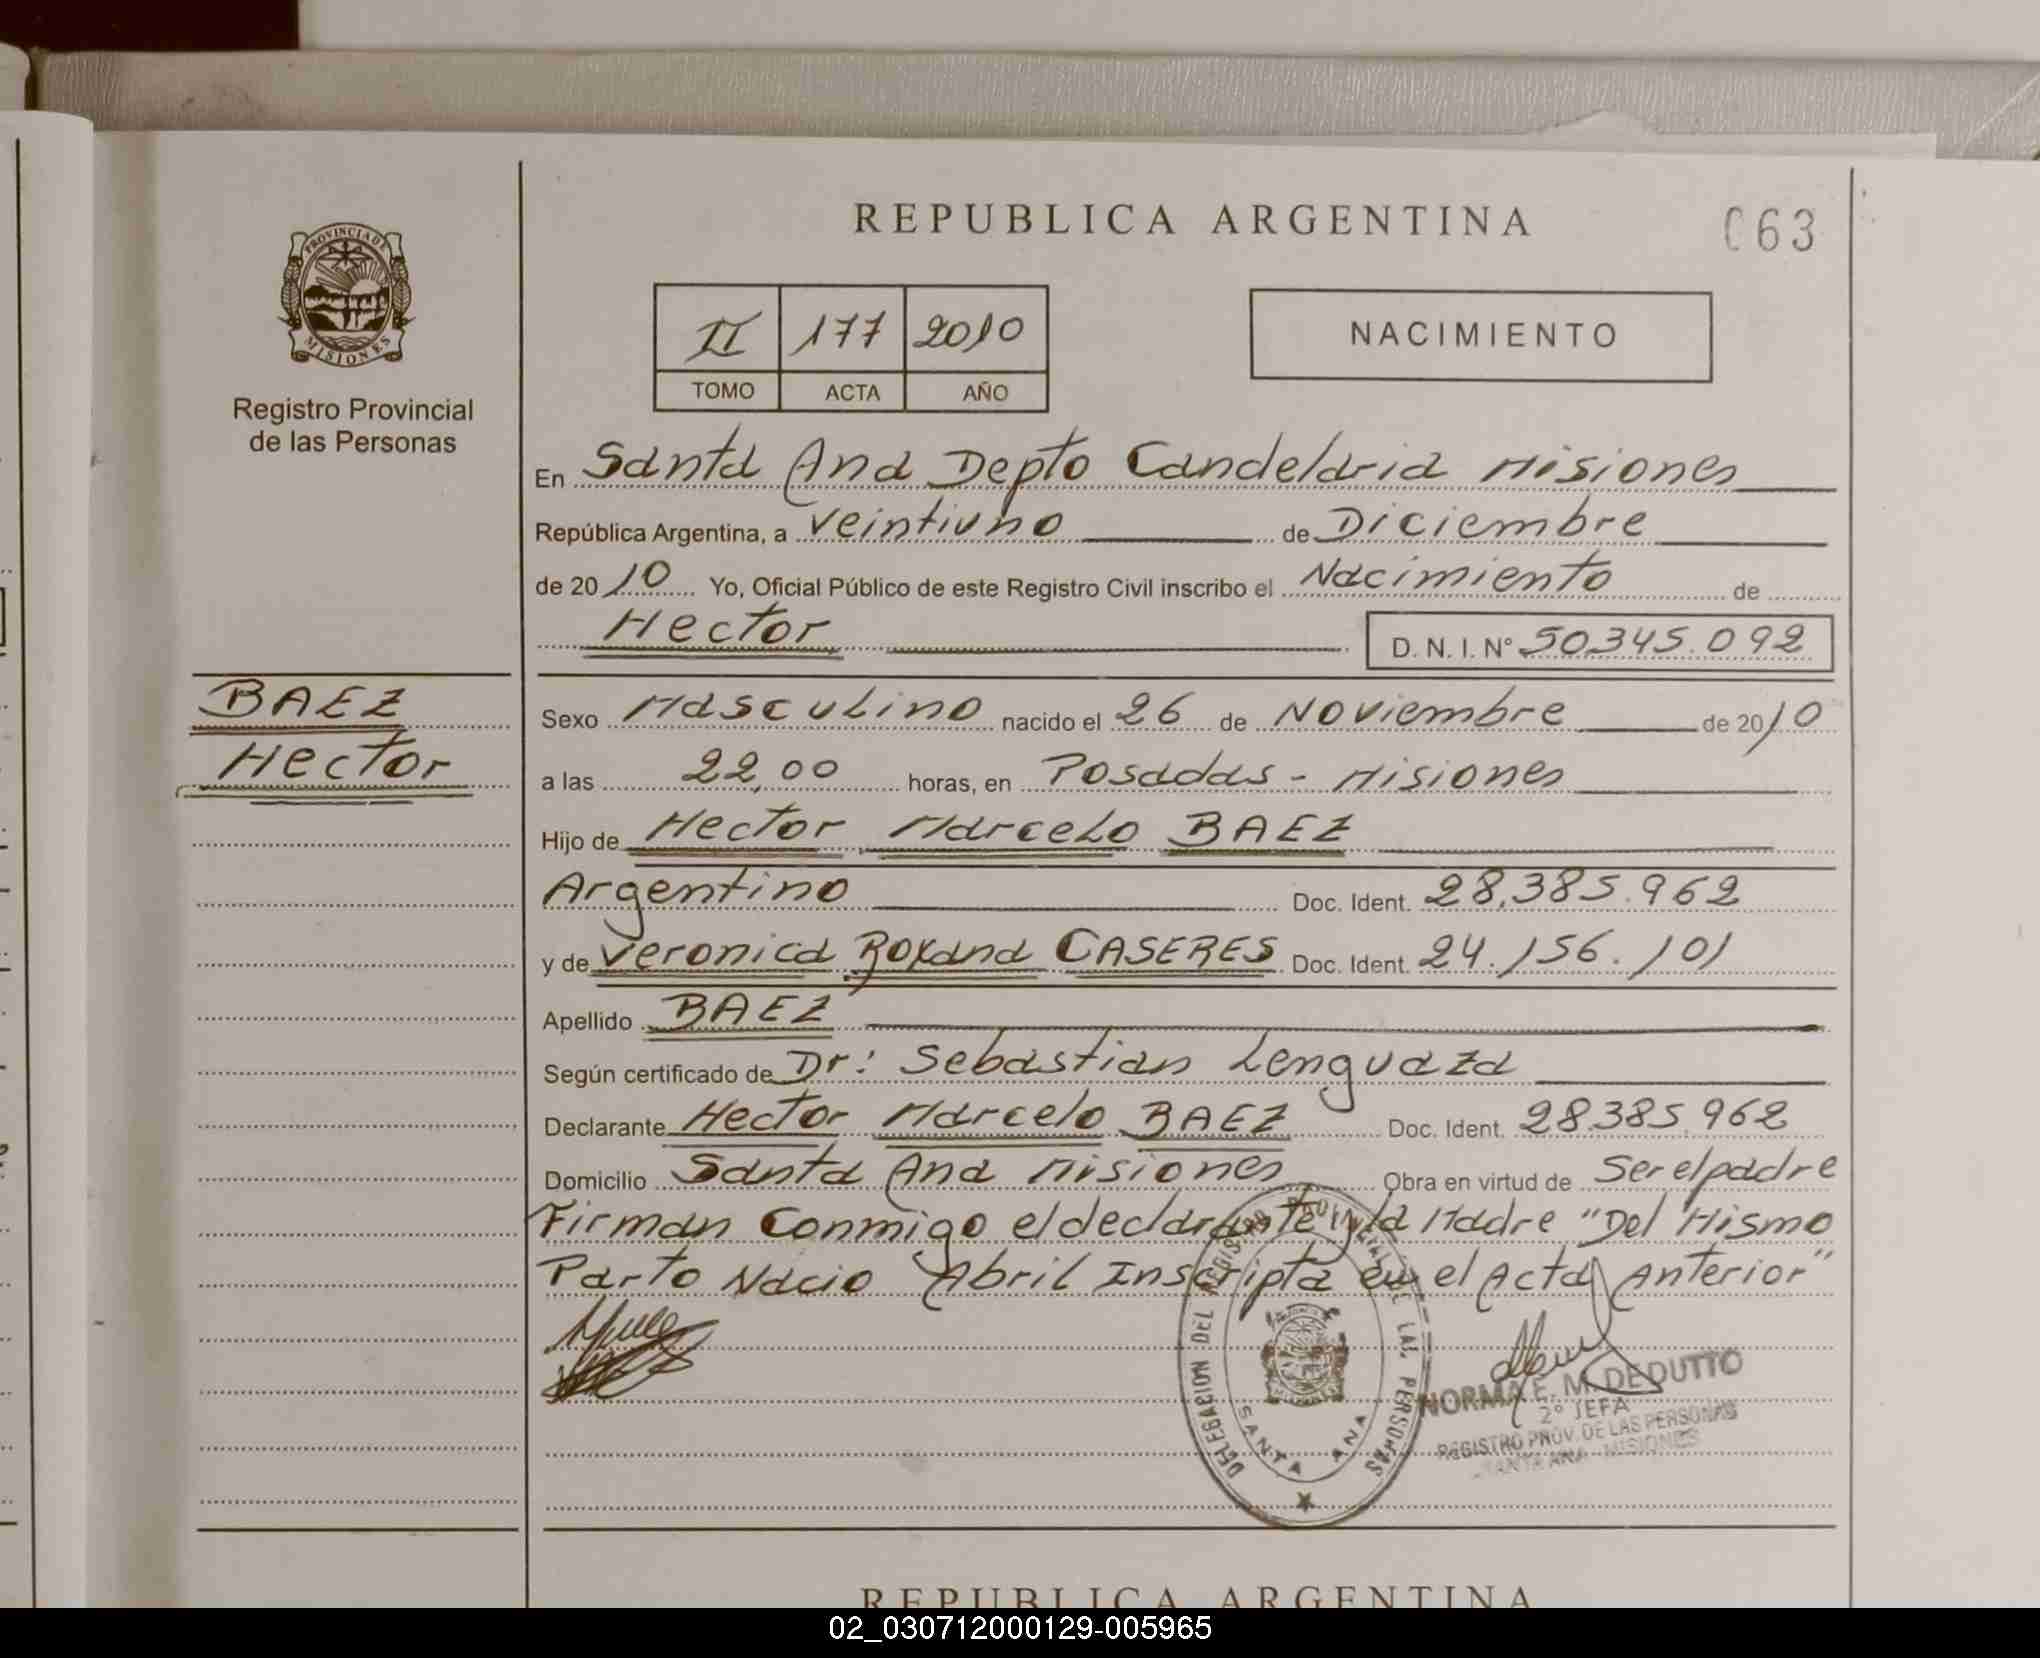 REPUBLICA ARGENTINA
063
PROVINCIA DE
MISIONES
Registro Provincial
de las Personas
II 177 2010
TOMO ACTA AÑO
NACIMIENTO
En Santa Ana Depto Candelaria Misiones
República Argentina, a Veintiuno de Diciembre
de 2010 Yo, Oficial Público de este Registro Civil inscribo el Nacimiento de
Hector D. N. I. N° 50.345.092
BAEZ
Hector
Sexo Masculino nacido el 26 de Noviembre de 2010
a las 22,00 horas, en Posadas - Misiones
Hijo de Hector Marcelo BAEZ
Argentino Doc. Ident. 28.385.962
y de Veronica Roxana CASERES Doc. Ident. 24.156.101
Apellido BAEZ
Según certificado de Dr: Sebastian Lenguaza
Declarante Hector Marcelo BAEZ Doc. Ident. 28385.962
Domicilio Santa Ana Misiones Obra en virtud de Ser el padre
Firman Conmigo el declarante y la Madre "Del Mismo
Parto Nacio Abril Inscripta en el Acta Anterior"
DELEGACION DEL REGISTRO PROVINCIAL DE LAS PERSONAS
SANTA ANA
NORMA E. M. DEDUTTO
2° JEFA
REGISTRO PROV. DE LAS PERSONAS
SANTA ANA - MISIONES
REPUBLICA ARGENTINA
02_030712000129-005965